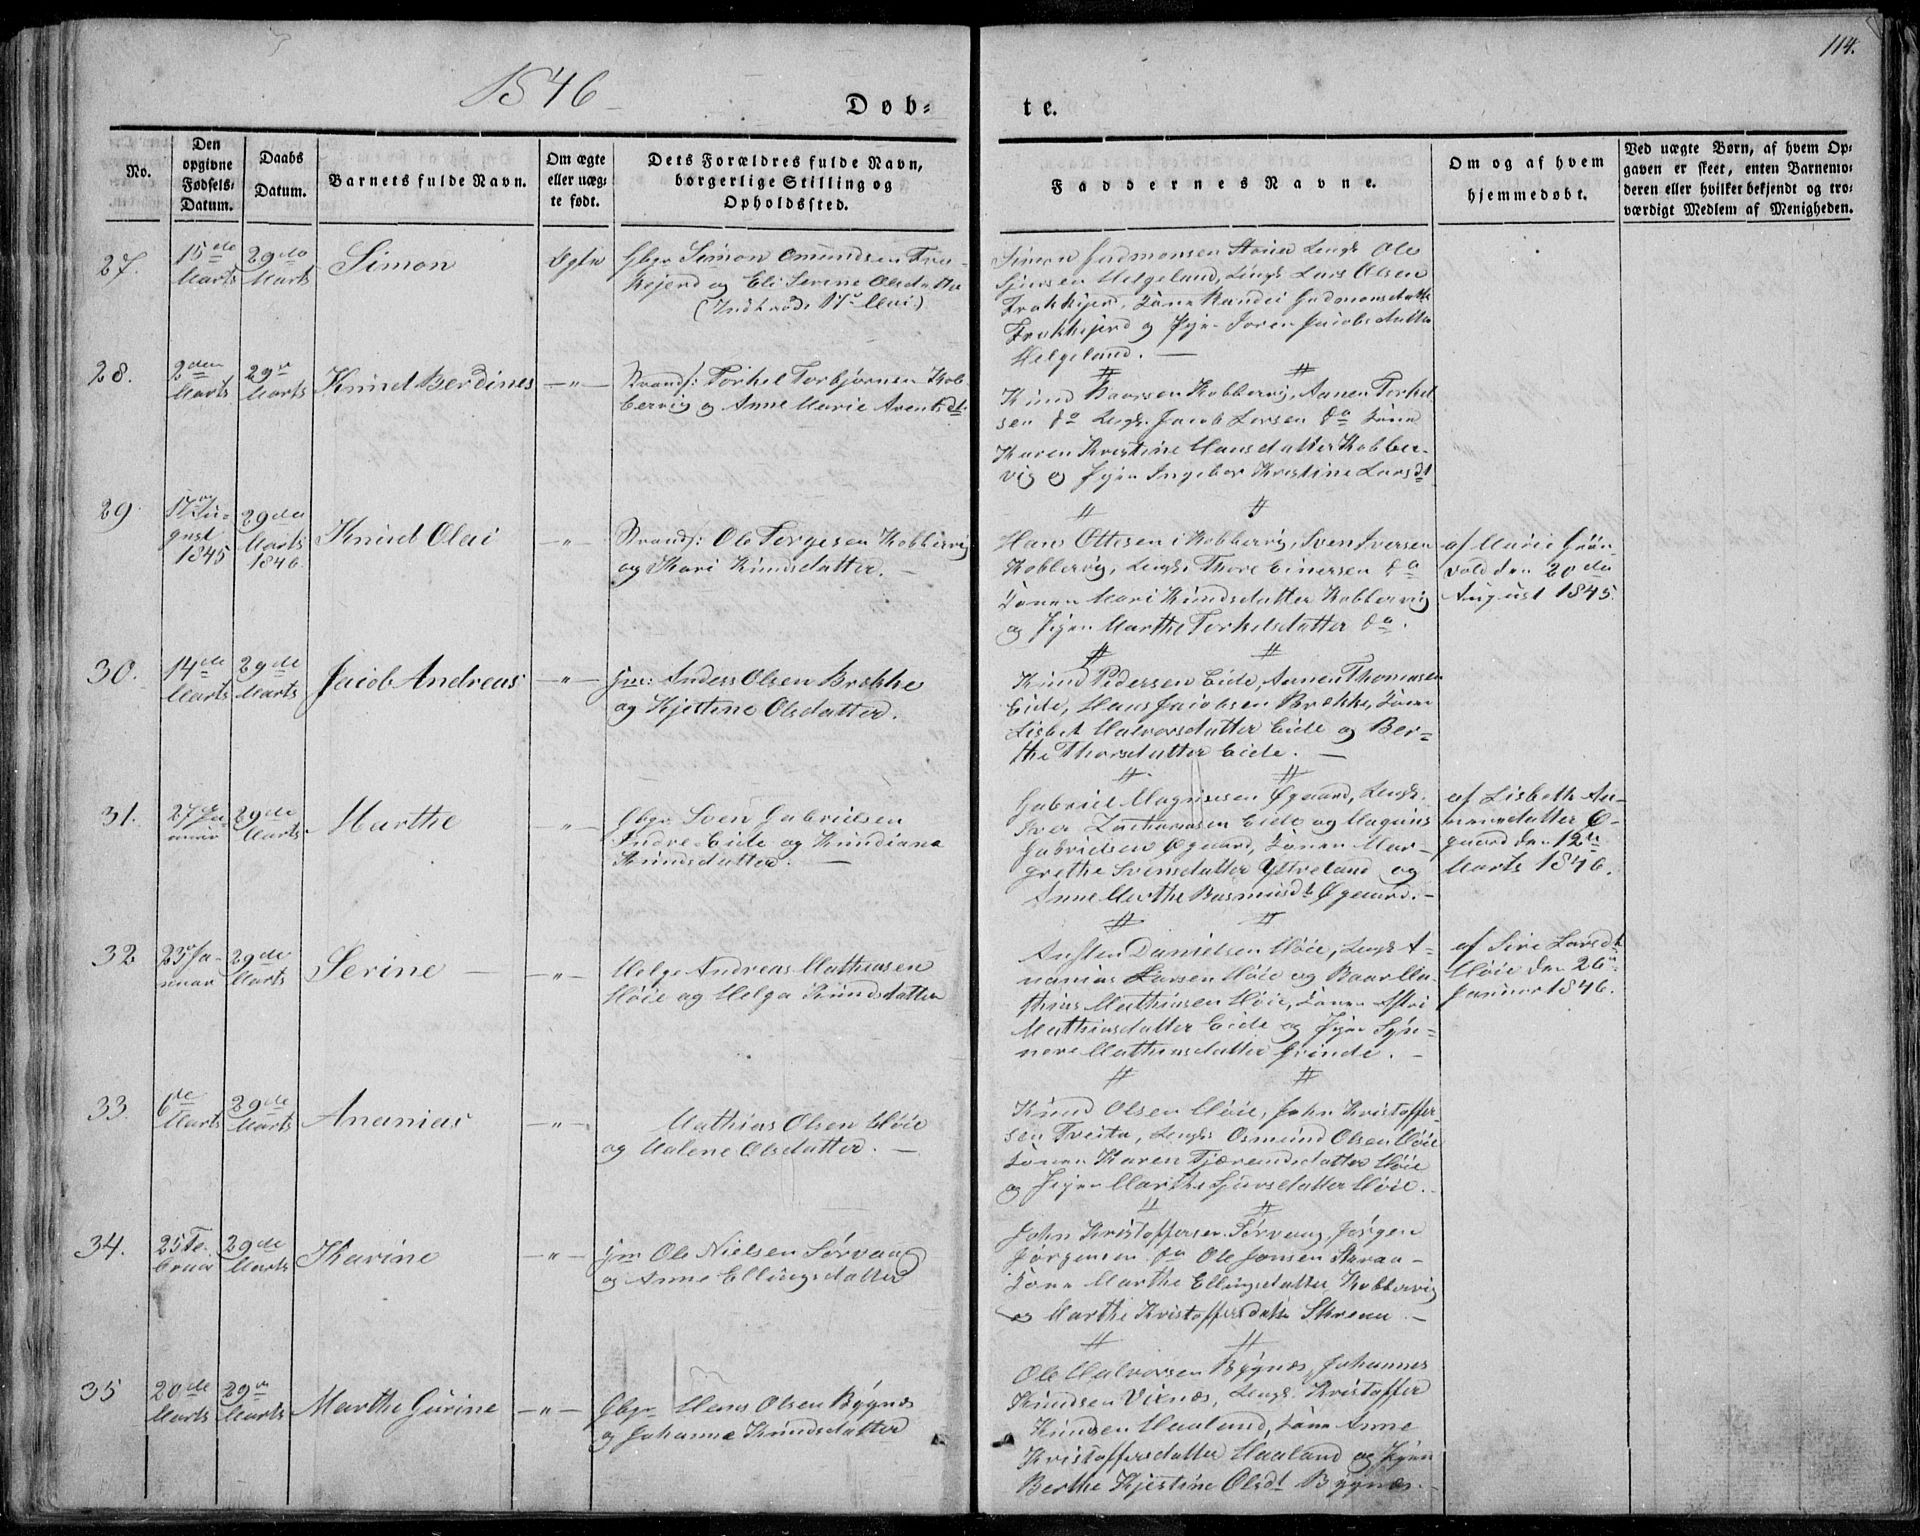 114.
1846
Døb-
te.
No.
Den
opgivne
Fødsels-
Datum.
Daabs
Datum.
Barnets fulde Navn.
Om ægte
eller uæg-
te født.
Dets Forældres fulde Navn,
borgerlige Stilling og
Opholdssted.
Faddernes Navne.
Om og af hvem
hjemmedøbt.
Ved uægte Børn, af hvem Op-
gaven er skeet, enten Barnemo-
deren eller hvilket bekjendt og tro-
værdigt Medlem af Menigheden.
27.
15de
Marts
29de
Marts
Simon
Ægte
Gbr Simon Omundsen
og Eli Serine Olsdatter
(Indkrods 17de Mai)
Simon Gudmonsen Ole
Sjursen Helgeland, Lars Olsen
Frakkjerd, Kone Randei Gudmonsdatter
Frakkjerd og Pigen Soren Jacobsdatter
Helgeland. —
28.
2den
Marts
29de
Marts
Knud Berdines
—"—
Strands: Torkel Torbjørnsen Kob-
bervig og Anne Marie Arentsdt.
Knud Baarsen Kobbervig, Aanen Torkel-
sen do Ungk. Jacob Larsen do Kone
Karen Kristine Hansdatter Kobber-
vig og Pigen Ingebor Kristine Larsdt
29.
17 Au-
gust
1845
29de
Marts
1846
Knud Olai
—"—
Strands: Ole Torgesen Kobbervig
og Kari Knudsdatter. —
Hans Ottesen Kobbervig, Sven Iversen
Kobbervig, Ungk. Thore Einersen do
Konen Mari Knudsdatter Kobbervig
og Pigen Marthe Torkelsdatter do.
af Marie Grøn-
vold den 20de
August 1845.
30.
14de
Marts
29de
Marts
Jacob Andreas
—"—
Gm: Anders Olsen Brekke
og Kjestine Olsdatter.
Knud Pedersen Eide, Aanen Thomasen
Eide, Hans Jacobsen Brekke, Kone
Lisbet Halvorsdatter Eide og Ber-
the Thorsdatter Eide. —
31.
27 Ja-
nuar
29de
Marts
Marthe
—"—
Gbr Sven Gabrielsen
Indre Eide og Knudiane
Knudsdatter. —
Gabriel Magnusen Øgaard, Ungk.
Iver Zachariasen Eide og Magnus
Gabrielsen Øgaard, Konen Mar-
grethe Svensdatter Ystreland og
Anne Marthe Rasmusdt Øgaard. —
af Lisbeth Aa-
nensdatter Ø-
gaard den 12de
Marts 1846.
32
23 Ja-
nuar
29de
Marts
Serine —
—"—
Helge Andreas Mathiasen
Høie og Helga Knudsdatter
Austen Danielsen Høie, Ungk A-
nanias Larsen Høie og Baar Ma-
thias Mathiasen Høie, Konen Astri
Mathiasdatter Eide og Pigen Syn-
nøve Mathiasdatter Grinde. —
af Siri Larsdt
Høie den 26de
Januar 1846.
33.
6de
Marts
29de
Marts
Ananias
—"—
Mathias Olsen Høie
og Malene Olsdatter. —
Knud Olsen Høie, John Kristoffer-
sen Tveita, Ungk Osmund Olsen Høie
Konen Karen Tjærandsdatter Høie
og Pigen Marthe Sjursdatter Høie.
34.
25 Fe-
bruar
29de
Marts
Karine
—"—
Gm Ole Nielsen Sørvaag
og Anne Ellingsdatter
John Kristoffersen Sørvaag, Jørgen
Jørgensen do Ole Jonsen
Kone Marthe Ellingsdatter Kobbervig
og Marthe Kristoffersdatter —
35
20de
Marts
29de
Marts
Marthe Gurine
—"—
Gbr Hans Olsen Bygnes
og Johanne Knudsdatter
Ole Halvorsen Bygnæs, Johannes
Knudsen Vixnæs, Ungk. Kristoffer
Knudsen Haaland, Kone Anne
Kristoffersdatter Haaland og Pigen
Berthe Kjestine Olsdt Bygnæs. —